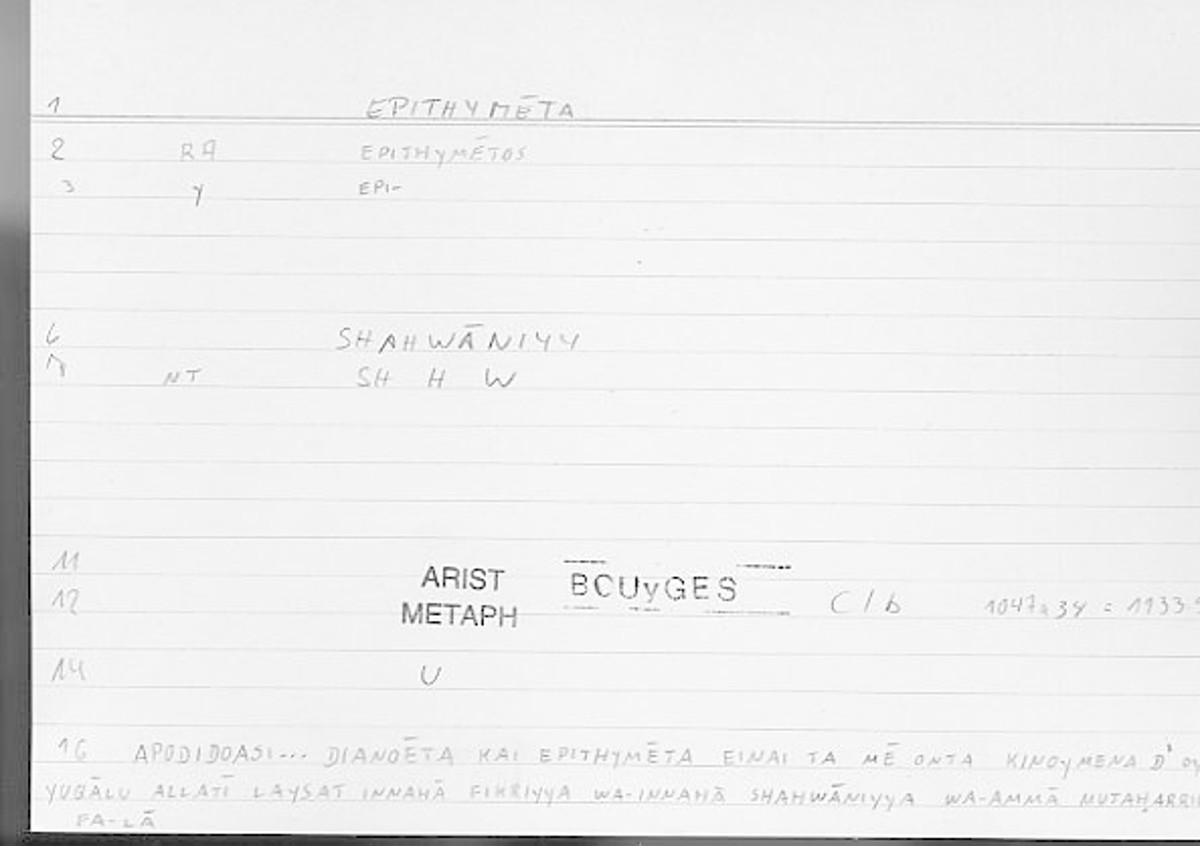 1 EPITHYMĒTA
2 RA EPITHYMĒTOS
3 y EPI-
6 SHAHWĀNIYY
NT SH H W
11 ARIST BOUyGES
12 METAPH C/b 1047a34 = 1133
14 U
16 APODIDOASI... DIANOĒTA KAI EPITHYMĒTA EINAI TA MĒ ONTA KINOyMENA D' Oy
YUQĀLU ALLATĪ LAYSAT INNAHĀ FIKRIYYA WA-INNAHĀ SHAHWĀNIYYA WA-AMMĀ MUTAḤARRI
FA-LĀ